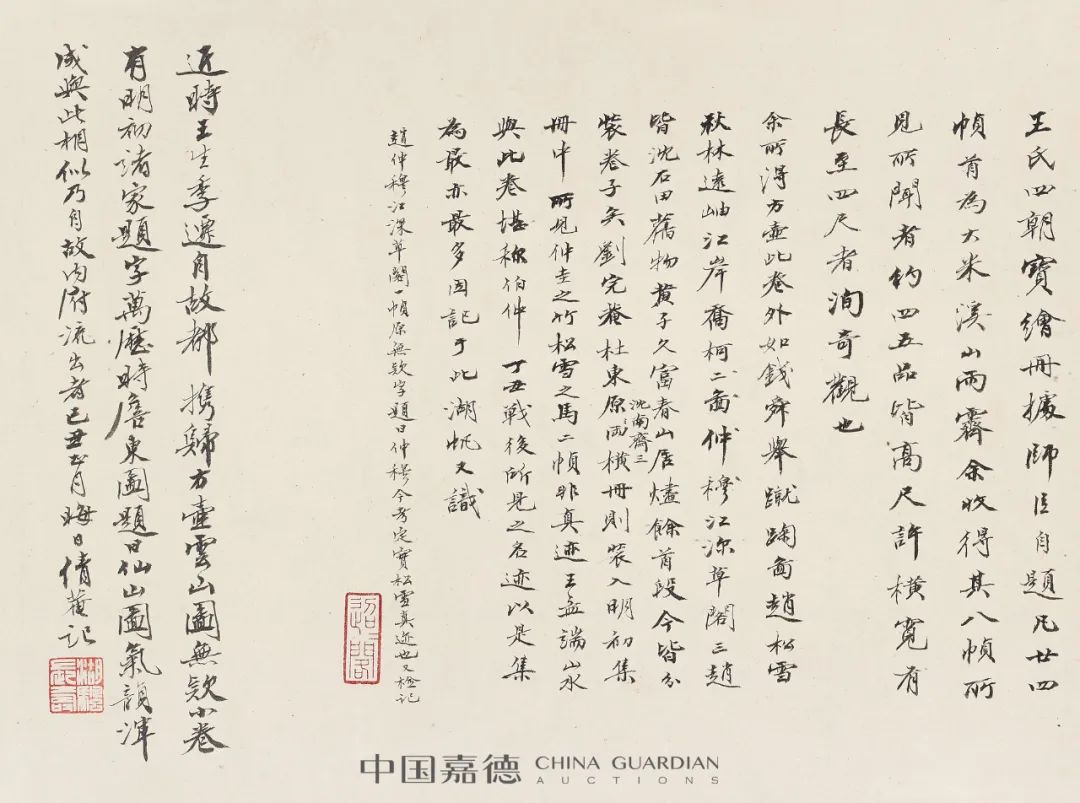 王氏四朝寶繪冊據師臣自題凡廿四
幀首為大米溪山雨霽余收得其八幀所
見所聞者約四五品皆高尺許橫寬有
長至四尺者洵奇觀也
余所得方壺此卷外如錢舜舉蹴踘啚趙松雪
秋林遠岫江岸喬柯二啚仲穆江深草閣三趙
皆沈石田舊物黃子久富春山居燼餘首段今皆分
裝卷子矣劉完菴杜東原沈南齋三両橫冊則裝入明初集
冊中所見仲圭之竹松雪之馬二幀非真迹王孟端山水
與此卷堪稱伯仲丁丑戰後所見之名迹以是集
為最亦最多因記于此湖帆又識
趙仲穆江深草閣一幀原無欵字題曰仲穆今考定實松雪真迹也又極記
近時王生季遷自故都攜歸方壺雲山圖無欵小卷
有明初諸家題字萬曆時詹東圖題曰仙山圖氣韻渾
成與此相似乃自故內府流出者己丑四月晦日倩菴記
中国嘉德 CHINA GUARDIAN
AUCTIONS